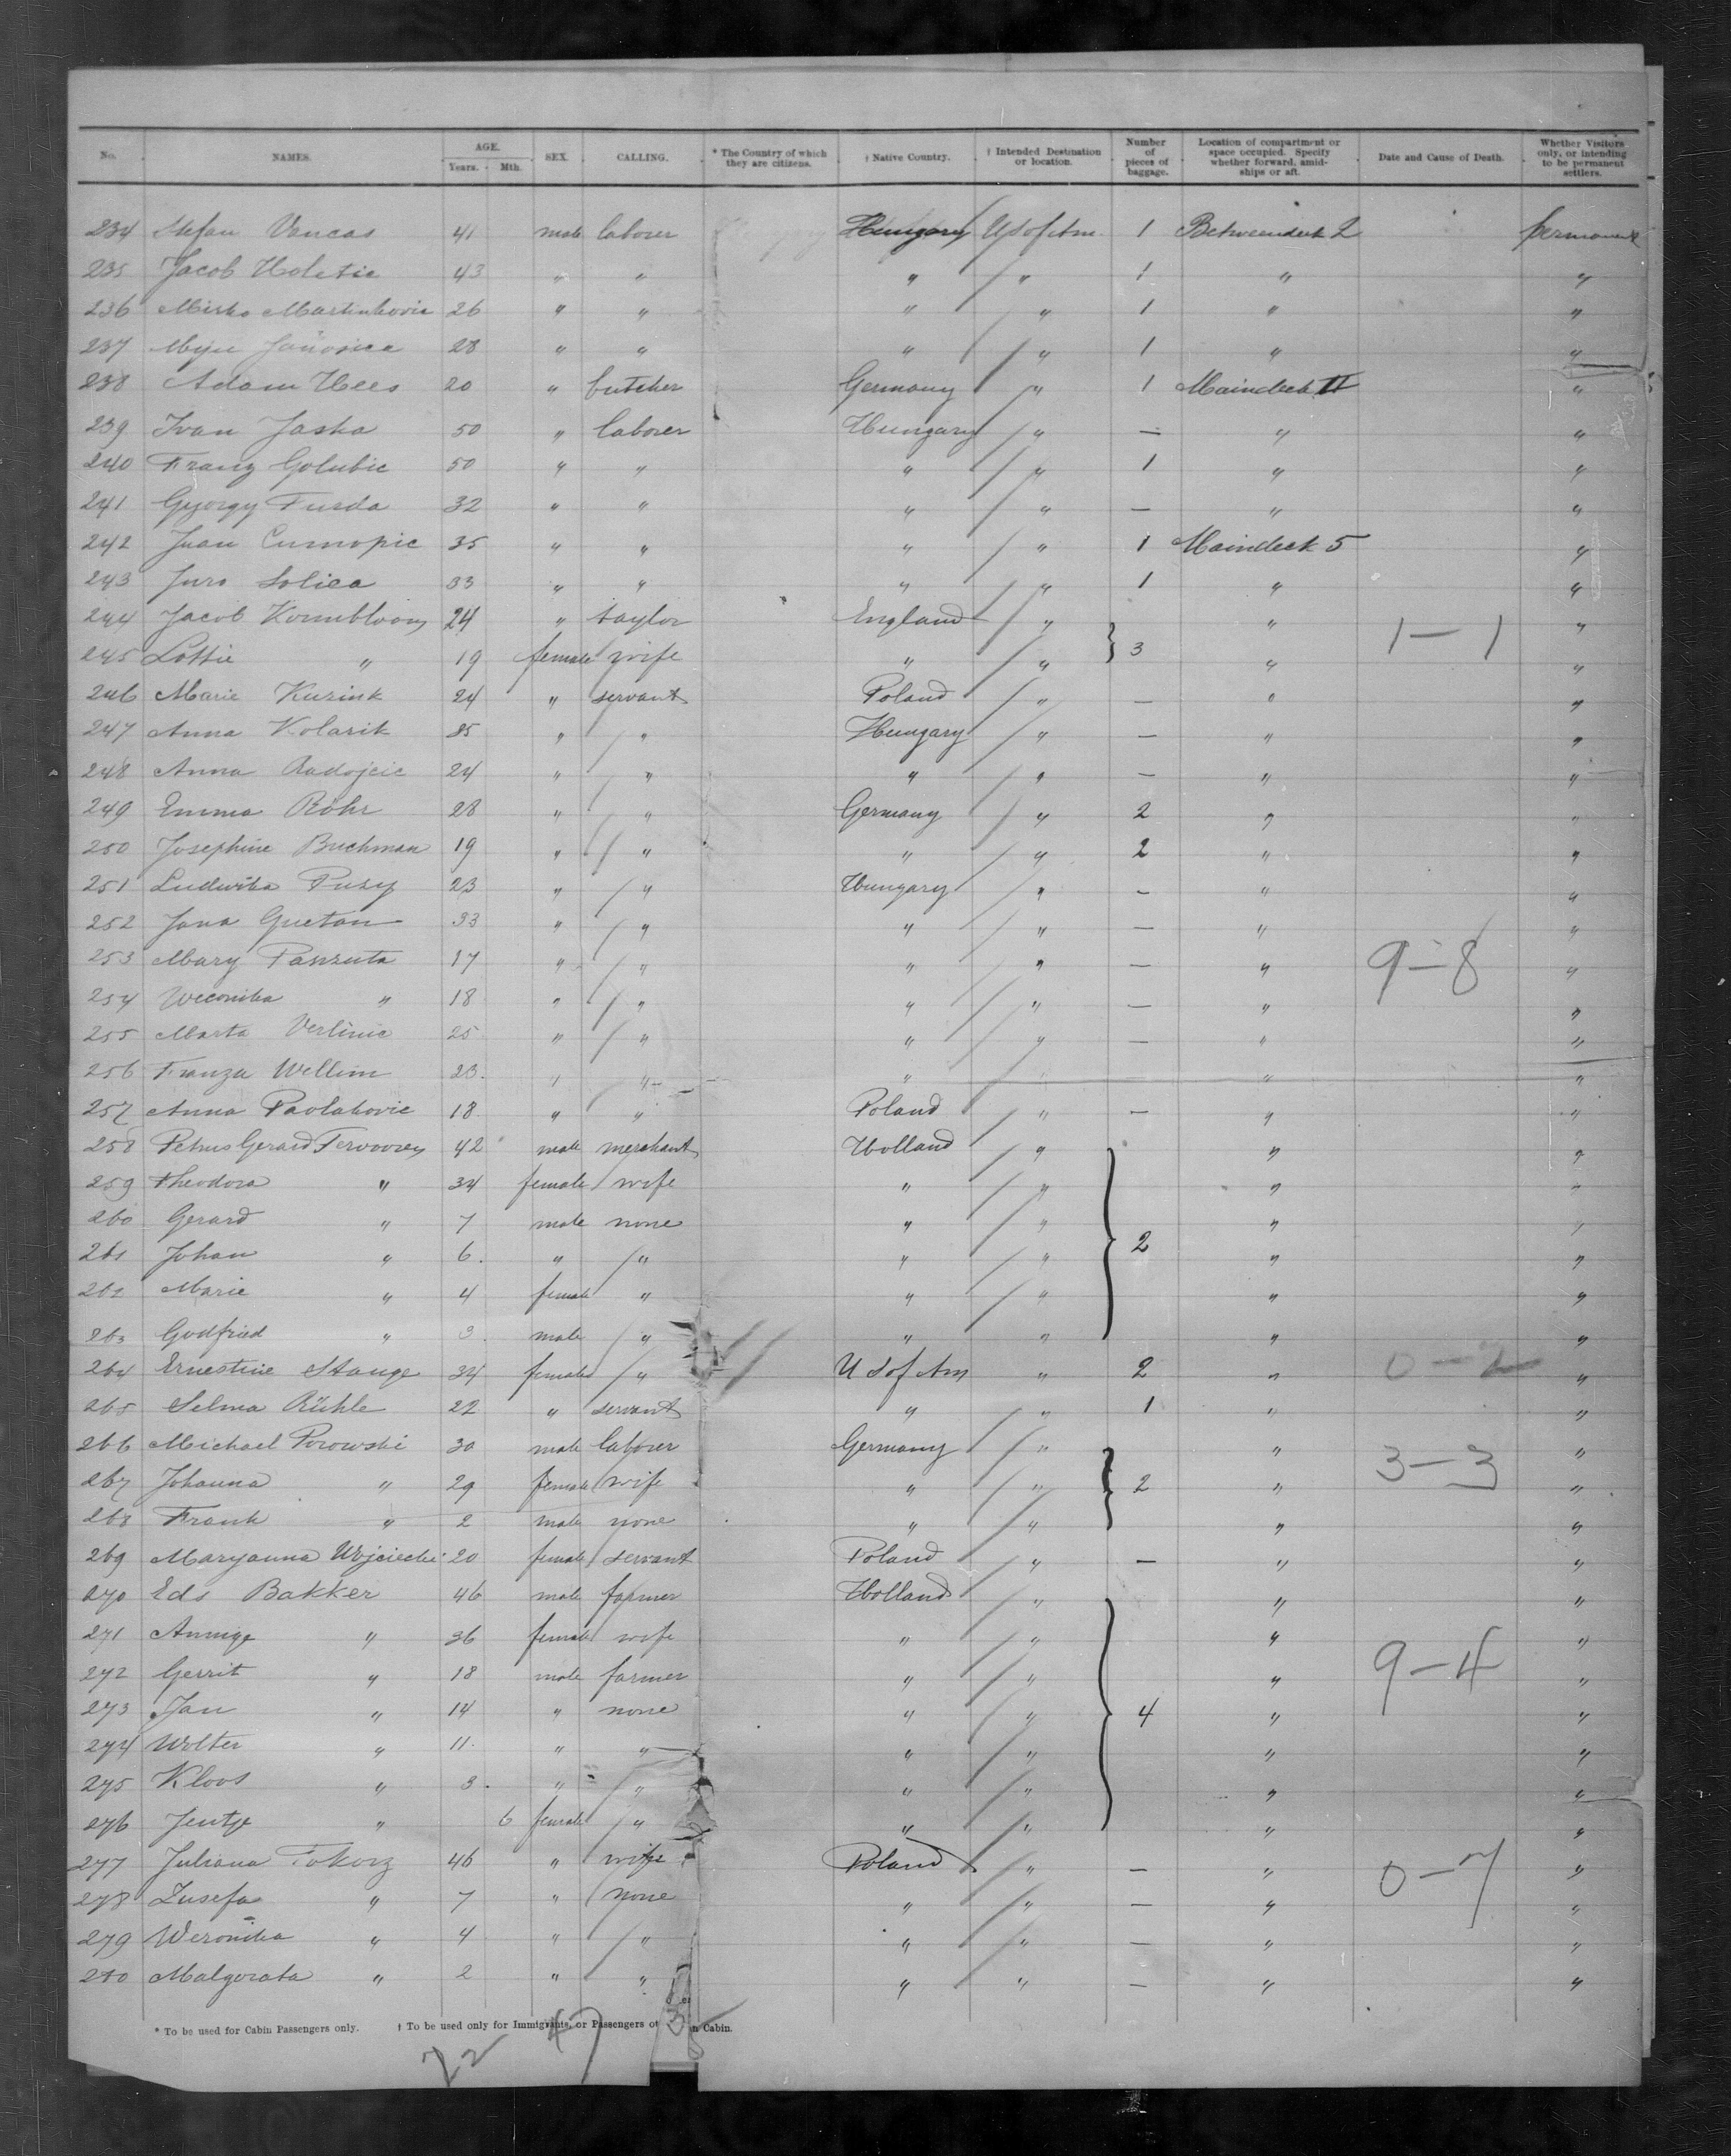 No. NAMES. AGE. Years. Mth. SEX. CALLING. * The Country of which they are citizens. † Native Country. † Intended Destination or location. Number of pieces of baggage. Location of compartment or space occupied. Specify whether forward, amidships or aft. Date and Cause of Death. Whether Visitors only, or intending to be permanent settlers.
234 Stefan Vancas 41 male laborer Hungary U S of Am. 1 Betweendeck 2 permanent
235 Jacob Holetic 43 " " " " 1 " "
236 Mirko Martinkovic 26 " " " " 1 " "
237 28 " " " " 1 " "
238 Adam Hees 20 " butcher Germany " 1 Maindeck II "
239 Ivan Jaska 50 " laborer Hungary " — " "
240 Franz Golubic 50 " " " " 1 " "
241 Gyorgy Fusda 32 " " " " — " "
242 Juan 35 " " " " 1 Maindeck 5 "
243 Juro Solica 33 " " " " 1 " "
244 Jacob Kornbloom 24 " taylor England " " 1—1 "
245 Lottie " 19 female wife " " 3 " "
246 Marie Kusink 24 " servant Poland " — " "
247 Anna Kolarik 35 " " Hungary " — " "
248 Anna Radojcic 24 " " " " — " "
249 Emma Röhr 28 " " Germany " 2 " "
250 Josephine Buchman 19 " " " " 2 " "
251 Ludwika Pusy 23 " " Hungary " — " "
252 Jana Guetan 33 " " " " — " "
253 Mary Panzuta 17 " " " " — " 9—8 "
254 Weconika " 18 " " " " — " "
255 Marta Verlinic 25 " " " " — " "
256 Franza Wellim 23 " " " " " "
257 Anna Pavlakovic 18 " " Poland " — " "
258 Petrus Gerard Tervooren 42 male merchant Holland " " "
259 Theodora " 34 female wife " " " "
260 Gerard " 7 male none " " " "
261 Johan " 6 " " " " 2 " "
262 Marie " 4 female " " " " "
263 Godfried " 3 male " " " " "
264 Ernestine Stange 34 female " U S of Am " 2 " 0—2 "
265 Selma Rühle 22 " servant " " 1 " "
266 Michael Porowski 30 male laborer Germany " " 3—3 "
267 Johanna " 29 female wife " " 2 " "
268 Frank " 2 male none " " " "
269 Maryanna Wojciechi 20 female servant Poland " — " "
270 Eds Bakker 46 male farmer Holland " " "
271 Annige " 36 female wife " " " "
272 Gerrit " 18 male farmer " " " 9—4 "
273 Jan " 14 " none " " 4 " "
274 Wolter " 11 " " " " " "
275 Kloos " 3 " " " " " "
276 Jentje " 6 female " " " " "
277 Juliana Tokorz 46 " wife Poland " — " 0—7 "
278 Zusefa " 7 " none " " — " "
279 Weronika " 4 " " " " — " "
280 Malgorata " 2 " " " " — " "
* To be used for Cabin Passengers only. † To be used only for Immigrants, or Passengers ot n Cabin.
22 47